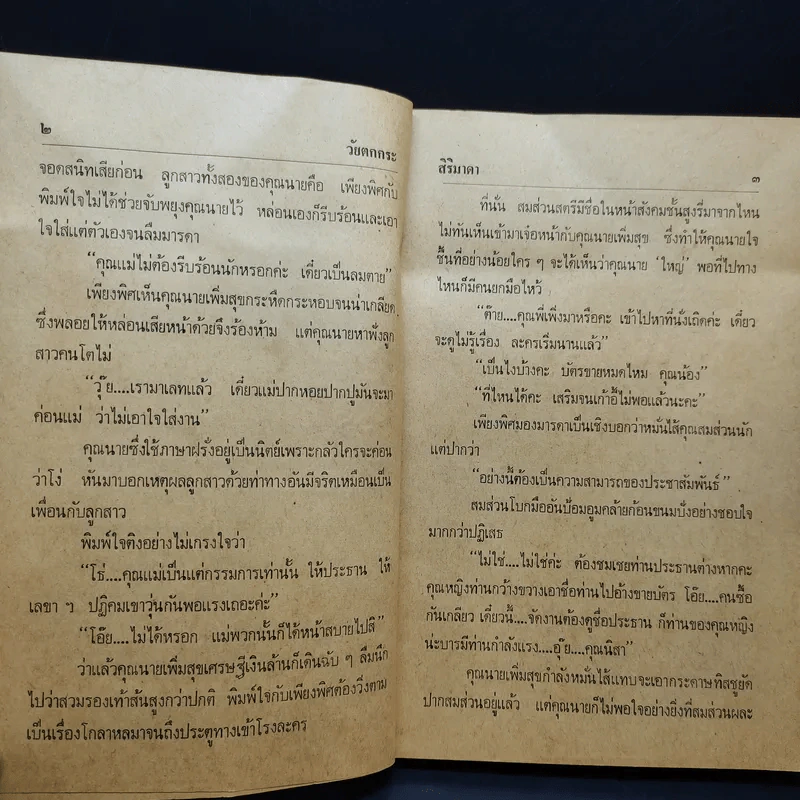 ๒
วัยตกกระ
จอดสนิทเสียก่อน ลูกสาวทั้งสองของคุณนายคือ เพียงพิศกับ
พิมพ์ใจไม่ได้ช่วยจับพยุงคุณนายไว้ หล่อนเองก็รีบร้อนและเอา
ใจใส่แต่ตัวเองจนลืมมารดา
“คุณแม่ไม่ต้องรีบร้อนนักหรอกค่ะ เดี๋ยวเป็นลมตาย”
เพียงพิศเห็นคุณนายเพิ่มสุขกระหืดกระหอบจนน่าเกลียด
ซึ่งพลอยให้หล่อนเสียหน้าด้วยจึงร้องห้าม แต่คุณนายหาฟังลูก
สาวคนโตไม่
“วุ๊ย....เรามาเลทแล้ว เดี๋ยวแม่ปากหอยปากปูมันจะมา
ค่อนแม่ ว่าไม่เอาใจใส่งาน”
คุณนายซึ่งใช้ภาษาฝรั่งอยู่เป็นนิตย์เพราะกลัวใครจะค่อน
ว่าโง่ หันมาบอกเหตุผลลูกสาวด้วยท่าทางอันมีจริตเหมือนเป็น
เพื่อนกับลูกสาว
พิมพ์ใจติงอย่างไม่เกรงใจว่า
“โธ่....คุณแม่เป็นแต่กรรมการเท่านั้น ให้ประธาน ให้
เลขา ฯ ปฏิคมเขาวุ่นกันพอแรงเถอะค่ะ”
“โอ๊ย....ไม่ได้หรอก แม่พวกนั้นก็ได้หน้าสบายไปสิ”
ว่าแล้วคุณนายเพิ่มสุขเศรษฐีเงินล้านก็เดินฉับ ๆ ลืมนึก
ไปว่าสวมรองเท้าส้นสูงกว่าปกติ พิมพ์ใจกับเพียงพิศต้องวิ่งตาม
เป็นเรื่องโกลาหลมาจนถึงประตูทางเข้าโรงละคร
สิริมาดา
๓
ที่นั่น สมส่วนสตรีมีชื่อในหน้าสังคมชั้นสูงรี่มาจากไหน
ไม่ทันเห็นเข้ามาเจ๋อหน้ากับคุณนายเพิ่มสุข ซึ่งทำให้คุณนายใจ
ชื้นที่อย่างน้อยใคร ๆ จะได้เห็นว่าคุณนาย ‘ใหญ่’ พอที่ไปทาง
ไหนก็มีคนยกมือไหว้
“ต๊าย....คุณพี่เพิ่งมาหรือคะ เข้าไปหาที่นั่งเถิดค่ะ เดี๋ยว
จะดูไม่รู้เรื่อง ละครเริ่มนานแล้ว”
“เป็นไงบ้างคะ บัตรขายหมดไหม คุณน้อง”
“ที่ไหนได้คะ เสริมจนเก้าอี้ไม่พอแล้วนะคะ”
เพียงพิศมองมารดาเป็นเชิงบอกว่าหมั่นไส้คุณสมส่วนนัก
แต่ปากว่า
“อย่างนี้ต้องเป็นความสามารถของประชาสัมพันธ์”
สมส่วนโบกมืออันป้อมอูมคล้ายก้อนขนมปังอย่างชอบใจ
มากกว่าปฏิเสธ
“ไม่ใช่....ไม่ใช่ค่ะ ต้องชมเชยท่านประธานต่างหากคะ
คุณหญิงท่านกว้างขวางเอาชื่อท่านไปอ้างขายบัตร โอ๊ย....คนซื้อ
กันเกลียว เดี๋ยวนี้....จัดงานต้องดูชื่อประธาน ก็ท่านของคุณหญิง
น่ะบารมีท่านกำลังแรง....อุ๊ย....คุณนิสา”
คุณนายเพิ่มสุขกำลังหมั่นไส้แทบจะเอากระดาษทิสชูยัด
ปากสมส่วนอยู่แล้ว แต่คุณนายก็ไม่พอใจอย่างยิ่งที่สมส่วนผละ